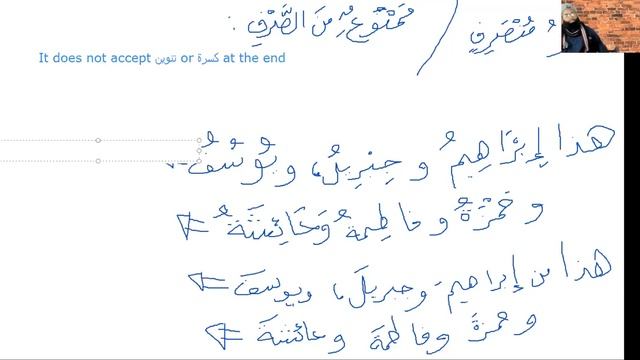 مُنْصَرِفٍ / مَمْنُوعٌ مِنَ الصَّرْفِ :
It does not accept تنوين or كسرة at the end
هذا إِبْرَاهِيمُ وجِبْرِيلُ، ويُوسُفُ
وحَمْزَةُ وفاطِمةُ وعَائِشَةُ
هذا من إبراهيمَ وجبريلَ، ويوسفَ
وحمزةَ وفاطمةَ وعائشةَ